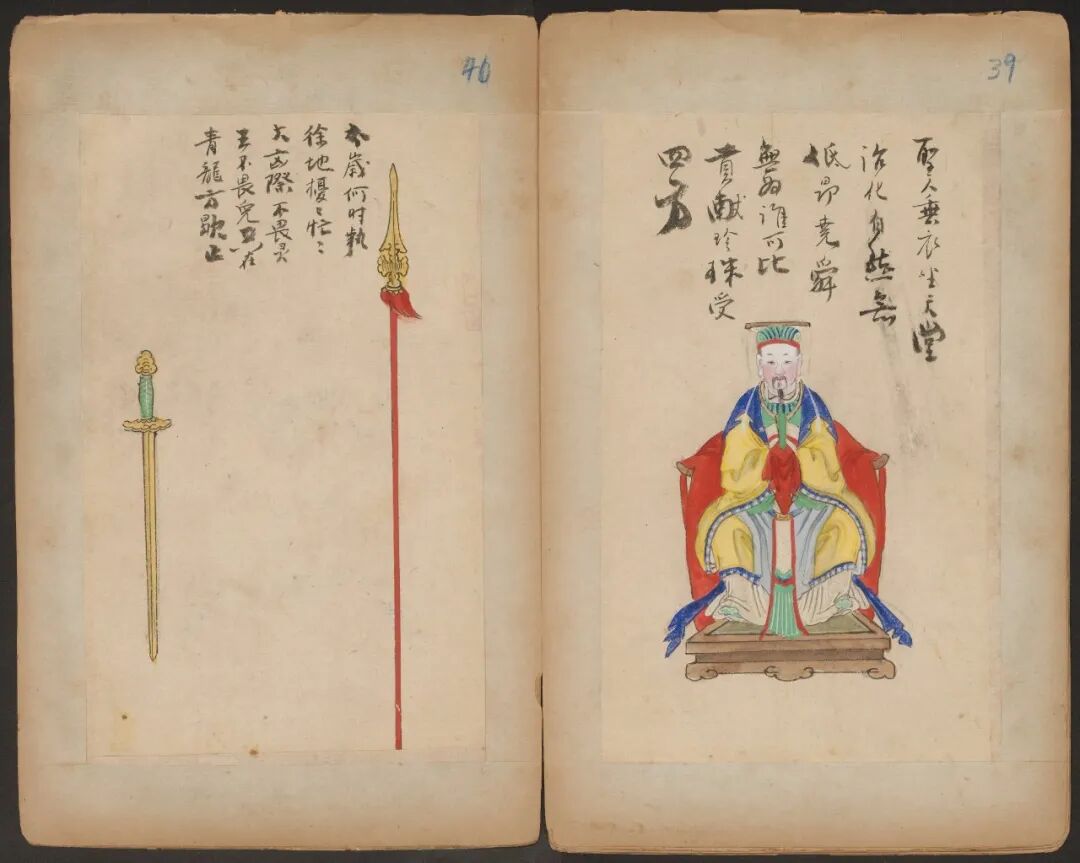 39
聖人垂衣坐天堂
治化自然無
低昂堯舜
無為誰可比
貢獻珍珠受
四方
40
太歲何时執
徐地擾〻忙〻
大凶際不畏灵
王不畏鬼只在
青龍方歇止